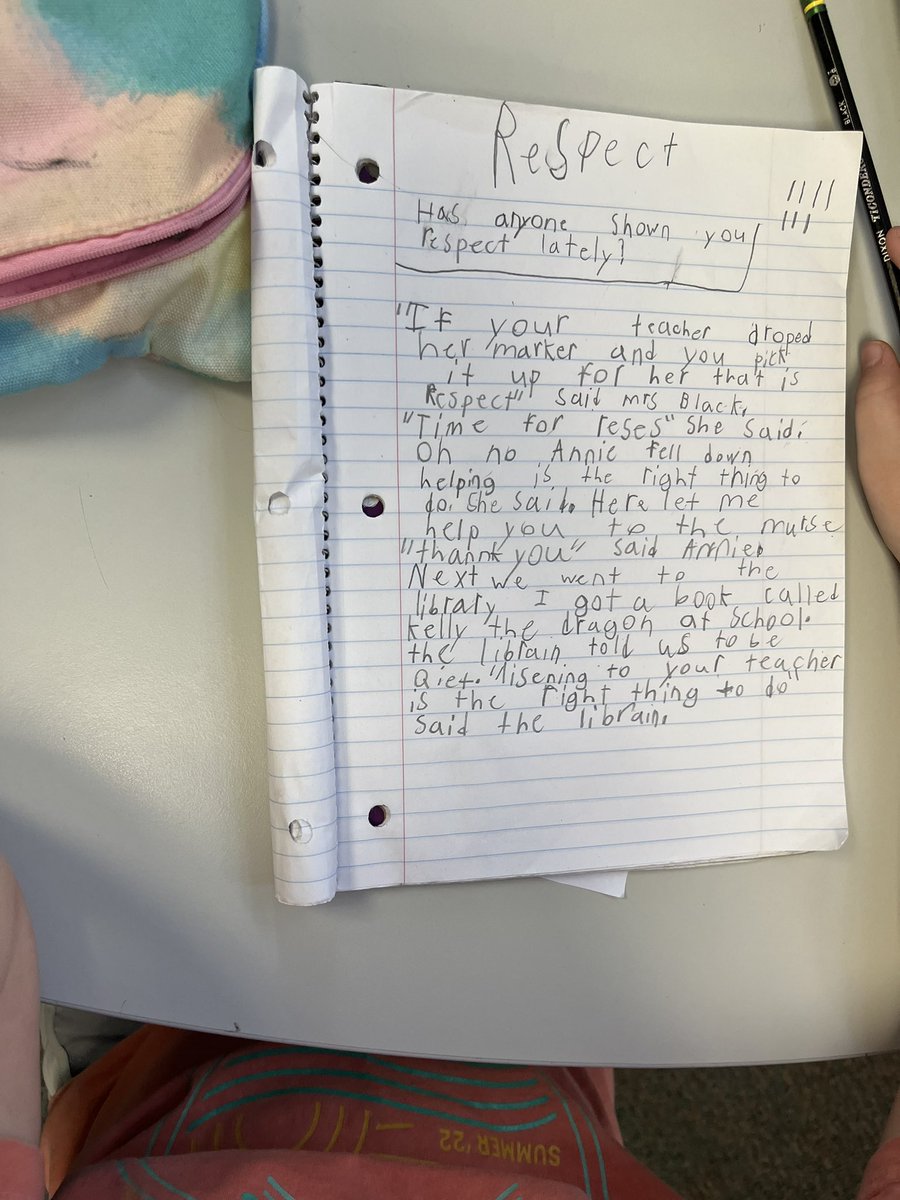 Respect
Has anyone shown you
respect lately?
"If your teacher droped
her marker and you pick
it up for her that is
Respect" said mrs Black.
"Time for reses" she said.
Oh no Annie fell down
helping is the right thing to
do. she said. Here let me
help you to the nurse
"thannk you" said Annie.
Next we went to the
library I got a book called
Kelly the dragon at school.
the librain told us to be
Qiet. "lisening to your teacher
is the right thing to do"
said the librain.
BLACK
DIXON TICONDEROGA
SUMMER '22